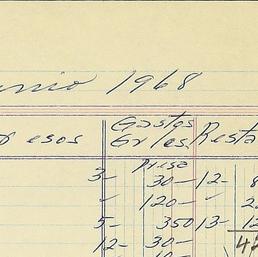 unio 1968
pesos Gastos Grles Resta
Pies
3- 30- 12- 8
" 120- " 2
5- 350 13- 12
12- 30- 42